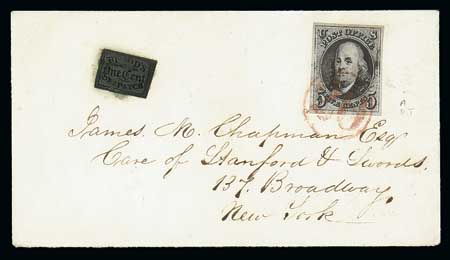 BLOOD'S
One Cent
DESPATCH
U S
POST OFFICE
5 FIVE CENTS 5
James. M. Chapman Esq
Care of Stanford & Swords.
137. Broadway
New York